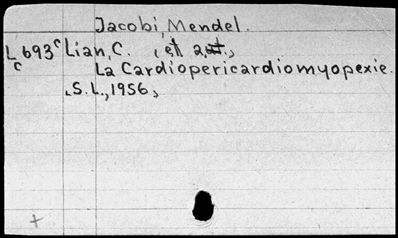 Jacobi, Mendel.
Lc 693c Lian, C. , et 2
La Cardiopericardiomyopexie.
, S.L., 1956,
+